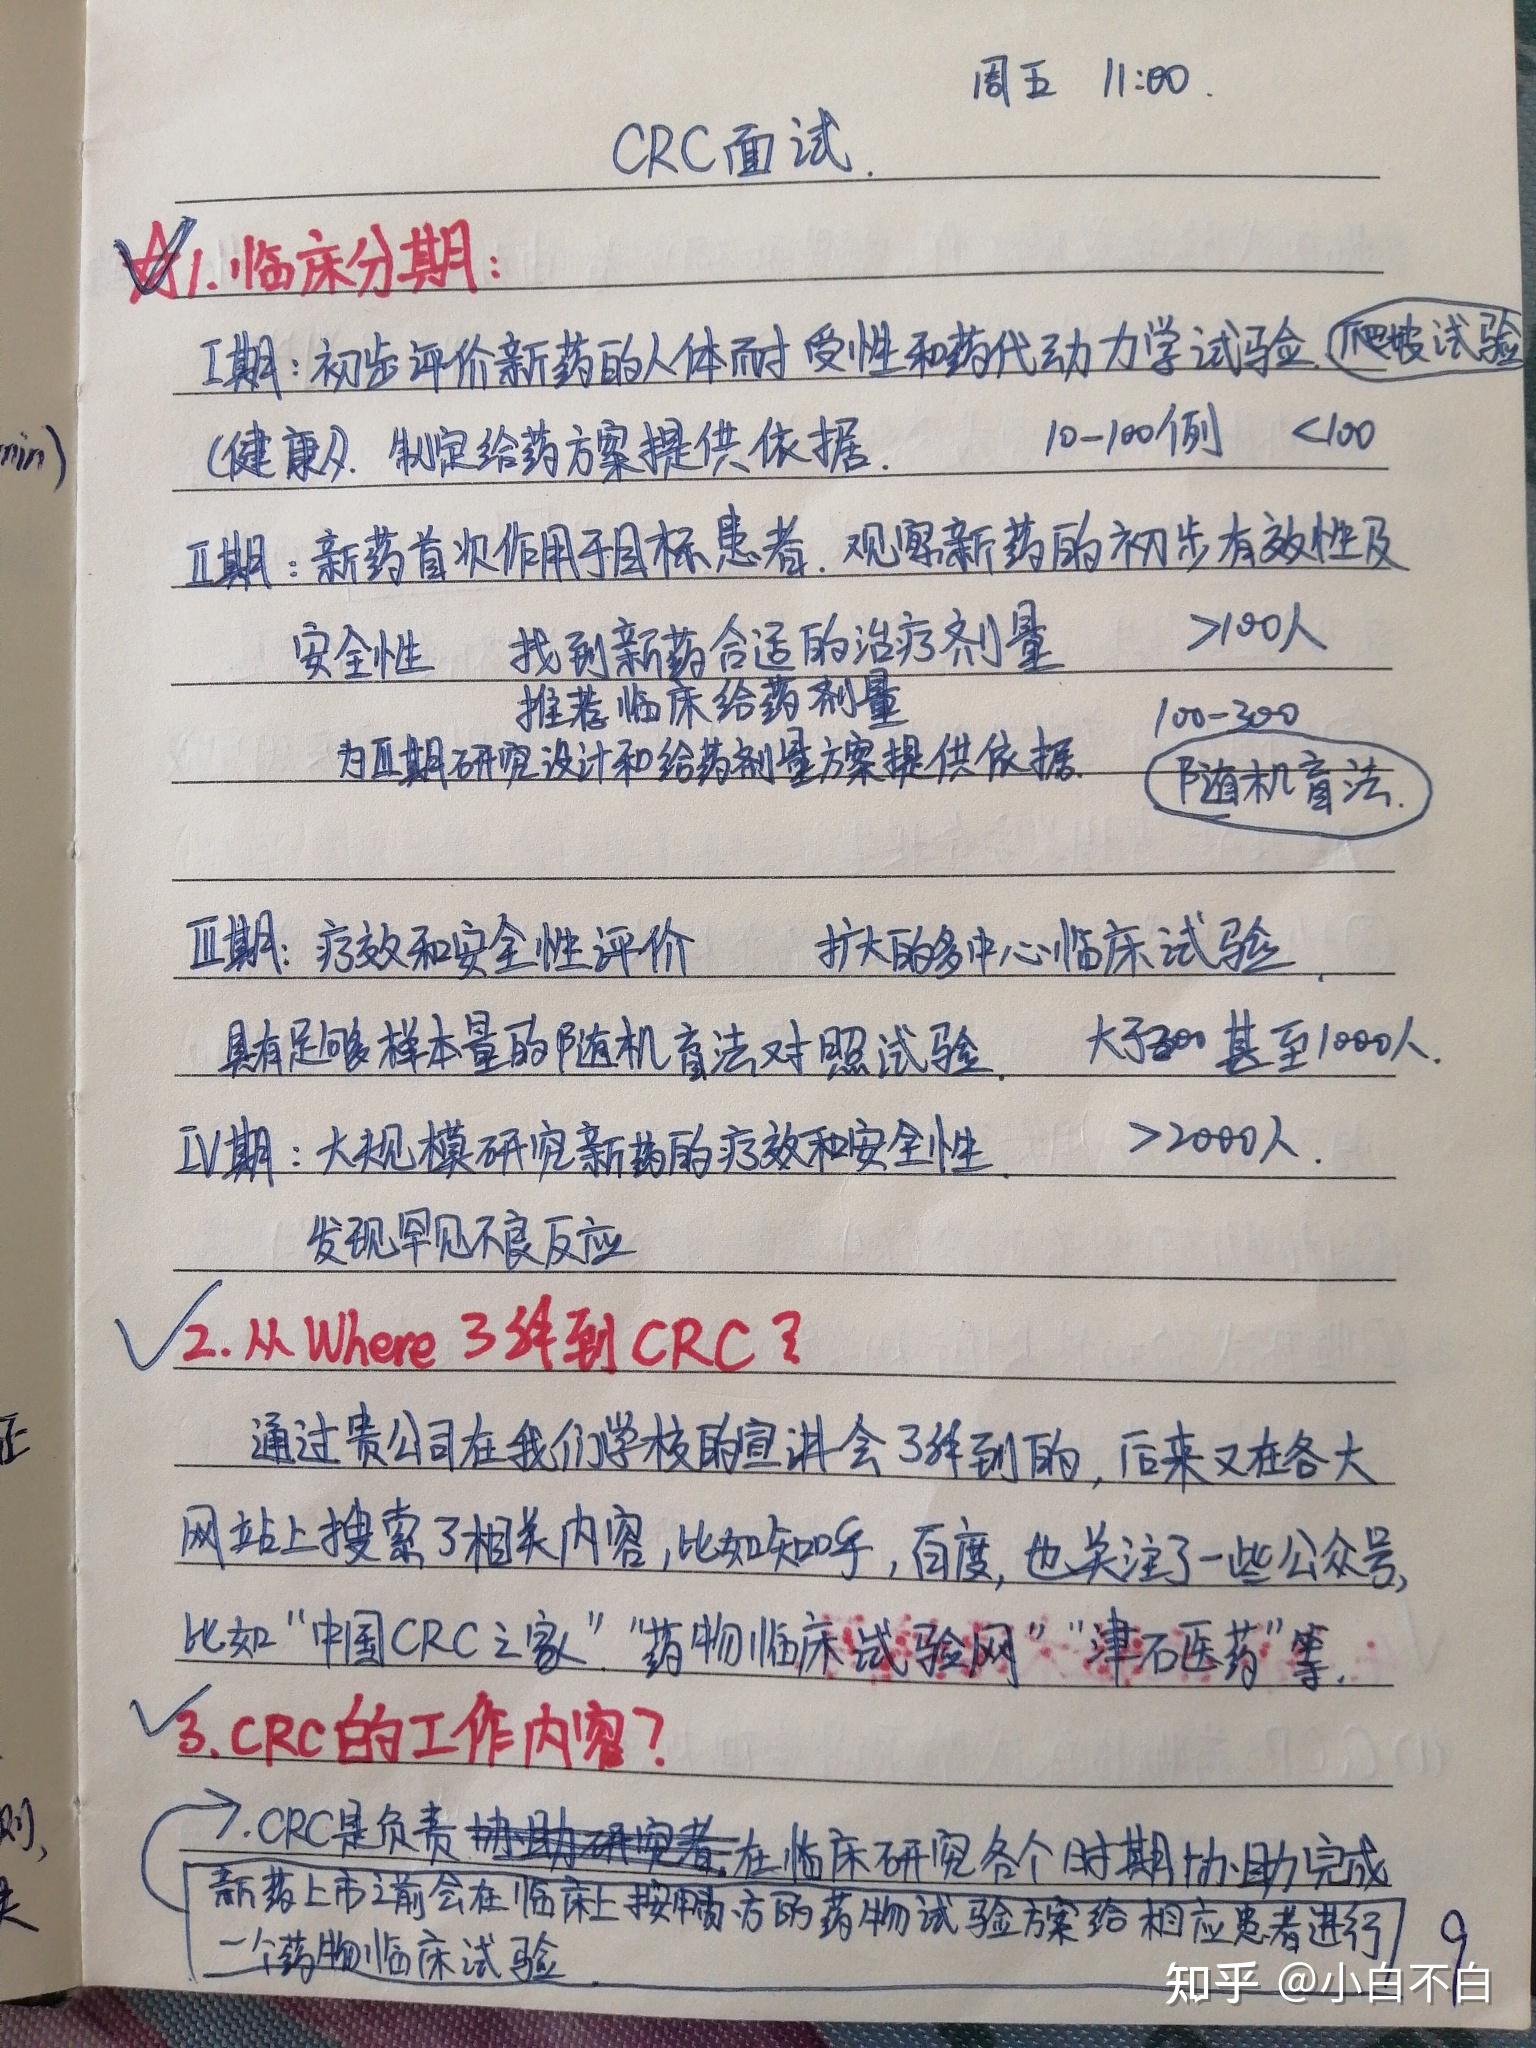 周五 11:00.
CRC面试.
1.临床分期:
I期:初步评价新药的人体耐受性和药代动力学试验.爬坡试验
(健康). 制定给药方案提供依据. 10-100例 <100
II期:新药首次作用于目标患者.观察新药的初步有效性及
安全性 找到新药合适的治疗剂量 >100人
推荐临床给药剂量 100-300
为III期研究设计和给药剂量方案提供依据. 随机盲法.
III期:疗效和安全性评价 扩大的多中心临床试验.
具有足够样本量的随机盲法对照试验. 大于300 甚至1000人.
IV期:大规模研究新药的疗效和安全性. >2000人.
发现罕见不良反应
2.从Where了解到CRC?
通过贵公司在我们学校的宣讲会了解到的,后来又在各大
网站上搜索了相关内容,比如知乎,百度,也关注了一些公众号,
比如“中国CRC之家”“药物临床试验网”“津石医药”等.
3.CRC的工作内容?
.CRC是负责协助研究者.在临床研究各个时期协助完成
新药上市之前会在临床上按申办方的药物试验方案给相应患者进行
一个药物临床试验.
9
min)
正
则,
知乎 @小白不白